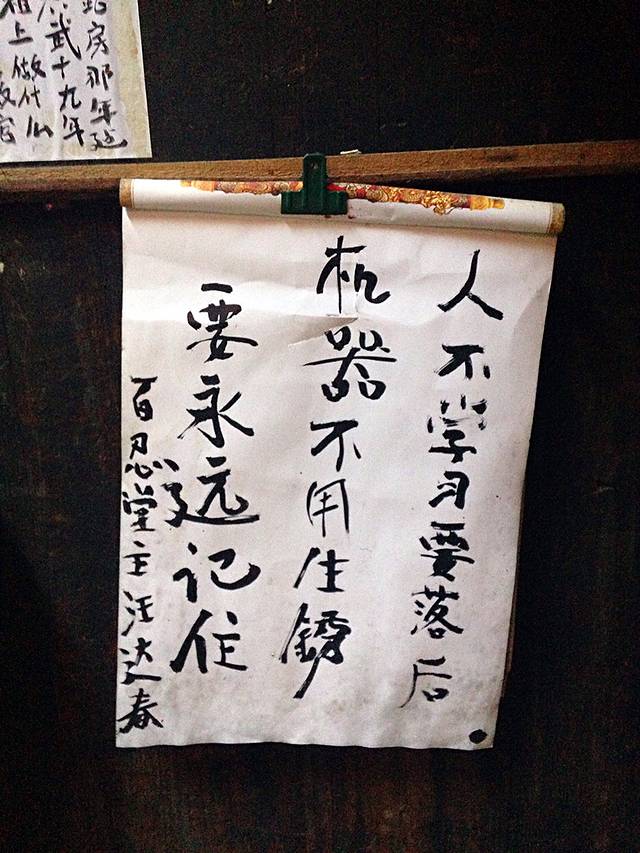 房那年造
武十九年
祖上做什么
人不学习要落后
机器不用生锈
要永远记住
百忍堂主汪达春